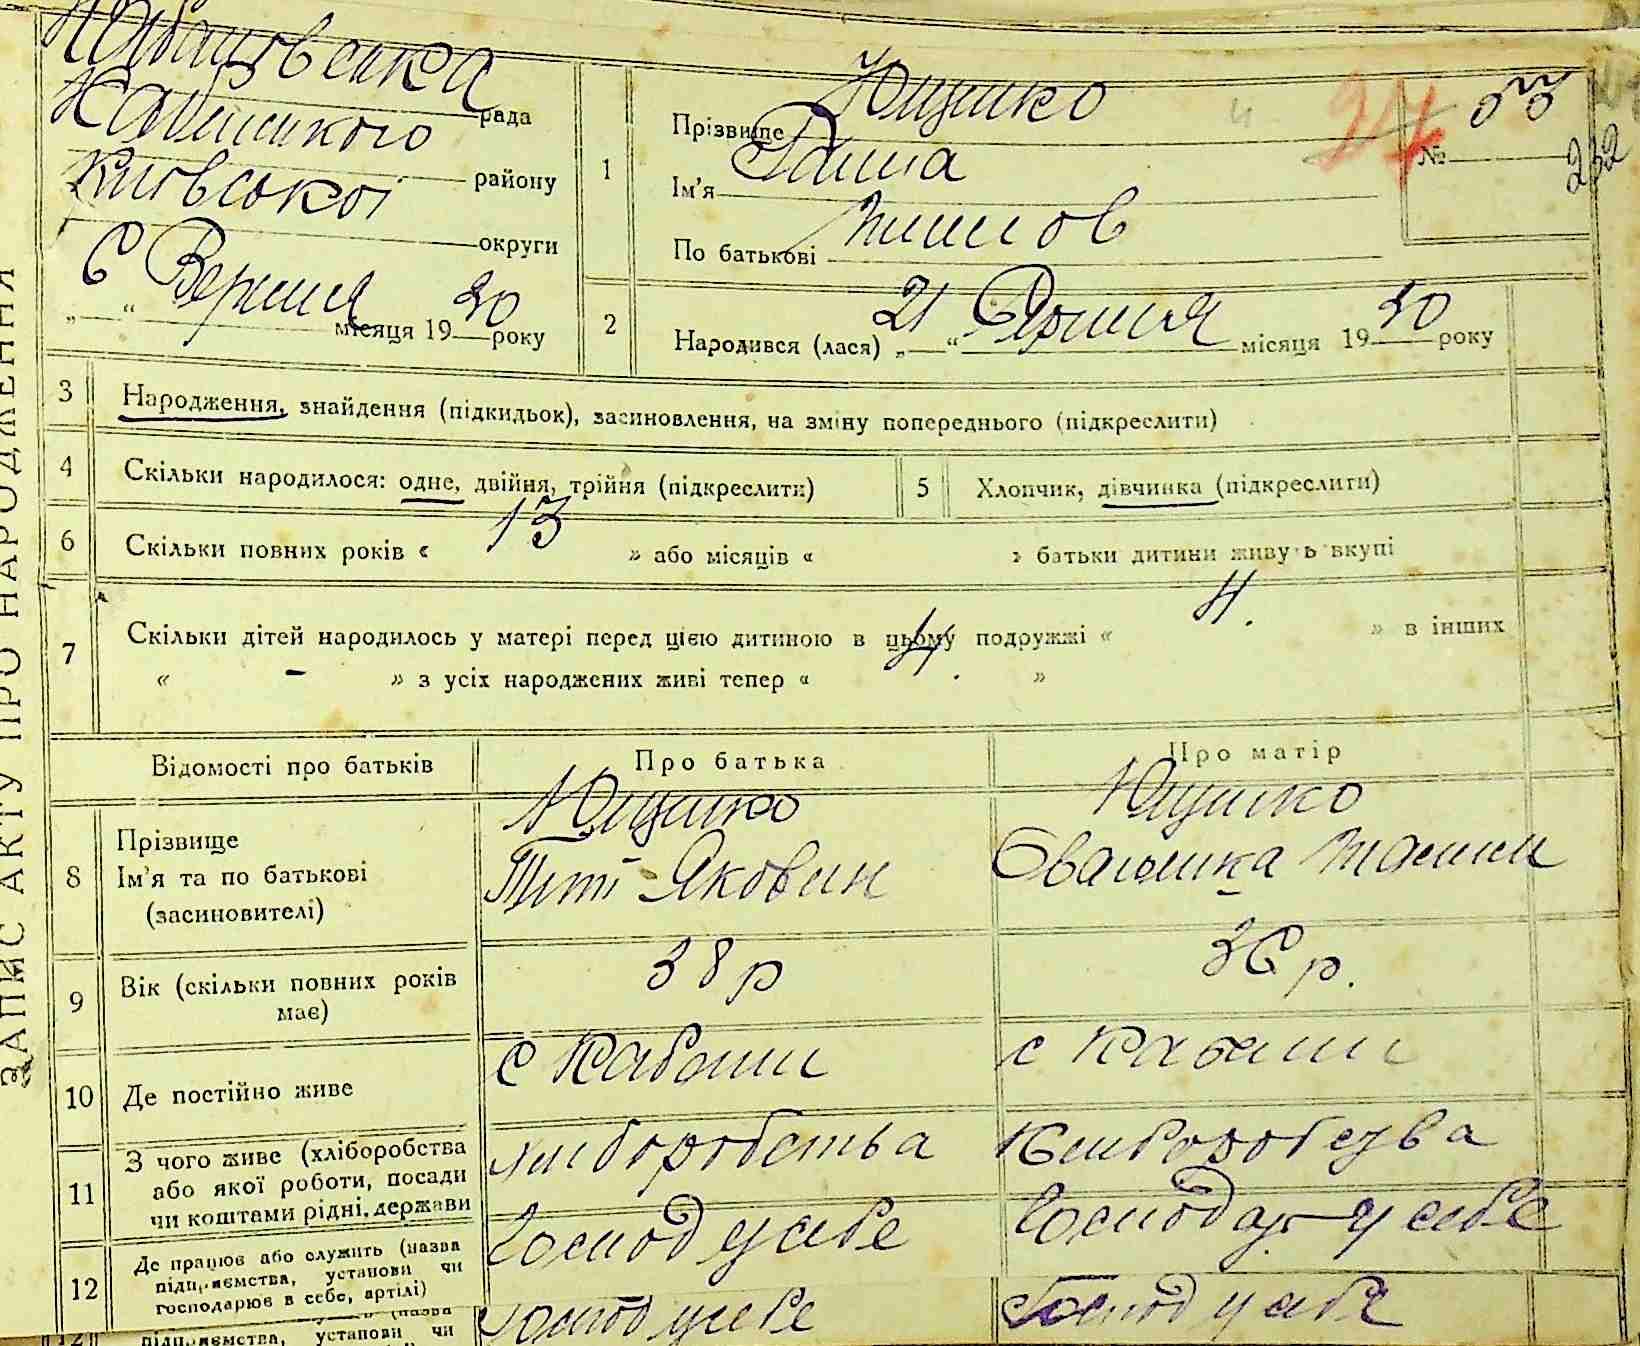 ЗАПИС АКТУ ПРО НАРОДЖЕННЯ
рада
Кабанського
району
Київської
округи
6 Вересня
„—“ місяця 1930 року
1
Прізвище Ющенко
Ім'я Ганна
По батькові Титов
27
№ 53
232
2
Народився (лася) „21“ місяця 1930 року
3 Народження, знайдення (підкидьок), засиновлення, на зміну попереднього (підкреслити)
4 Скільки народилося: одне, двійня, трійня (підкреслити)
5 Хлопчик, дівчинка (підкреслити)
6 Скільки повних років « 13 » або місяців « » батьки дитини живуть вкупі
7 Скільки дітей народилось у матері перед цією дитиною в цьому подружжі « 4. » в інших
« - » з усіх народжених живі тепер « 4. »
Відомості про батьків
Про батька
Про матір
8 Прізвище
Ім'я та по батькові
(засиновителі)
Ющенко
Тит Якович
Ющенко
9 Вік (скільки повних років
має)
38 р
36 р.
10 Де постійно живе
с Кабани
с Кабани
11 З чого живе (хліборобства
або якої роботи, посади
чи коштами рідні, держави
хліборобства
хліборобства
12 Де працює або служить (назва
підприємства, установи чи
господарює в себе, артілі)
Господ у себе
Господар у себе
12 (назва
підприємства, установи чи
Господ у себе
Господ у себе